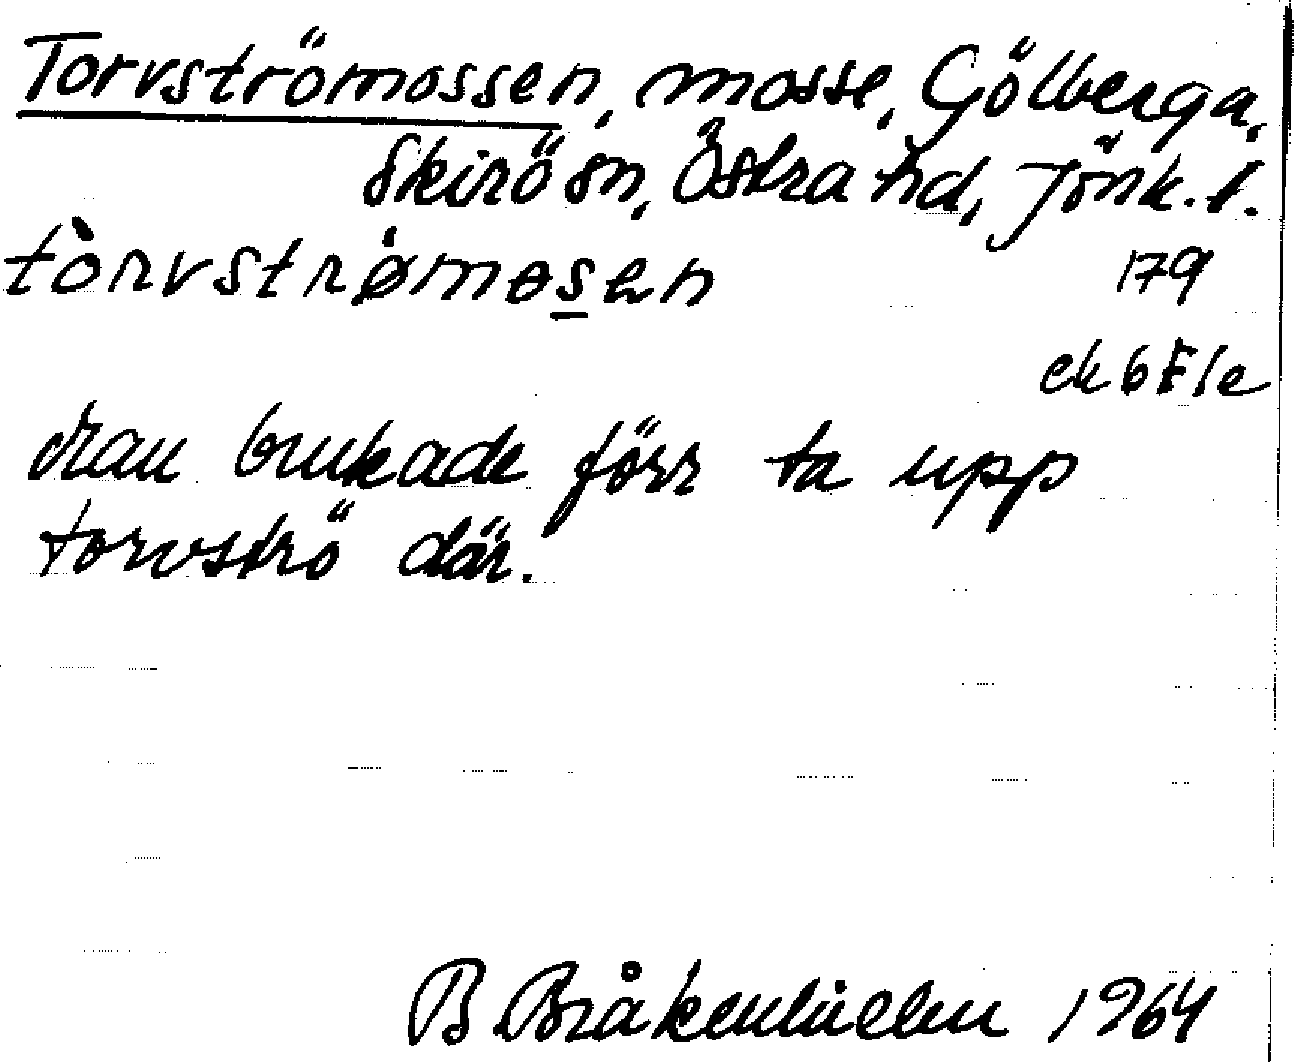 Torvströmossen, mosse, Gölberga,
Skirö sn, Östra hd, Jönk. l.
tòrvstrømosen
179
ek 6 F 1 e
Man brukade förr ta upp
torvströ där.
B Bråkenhielm 1964